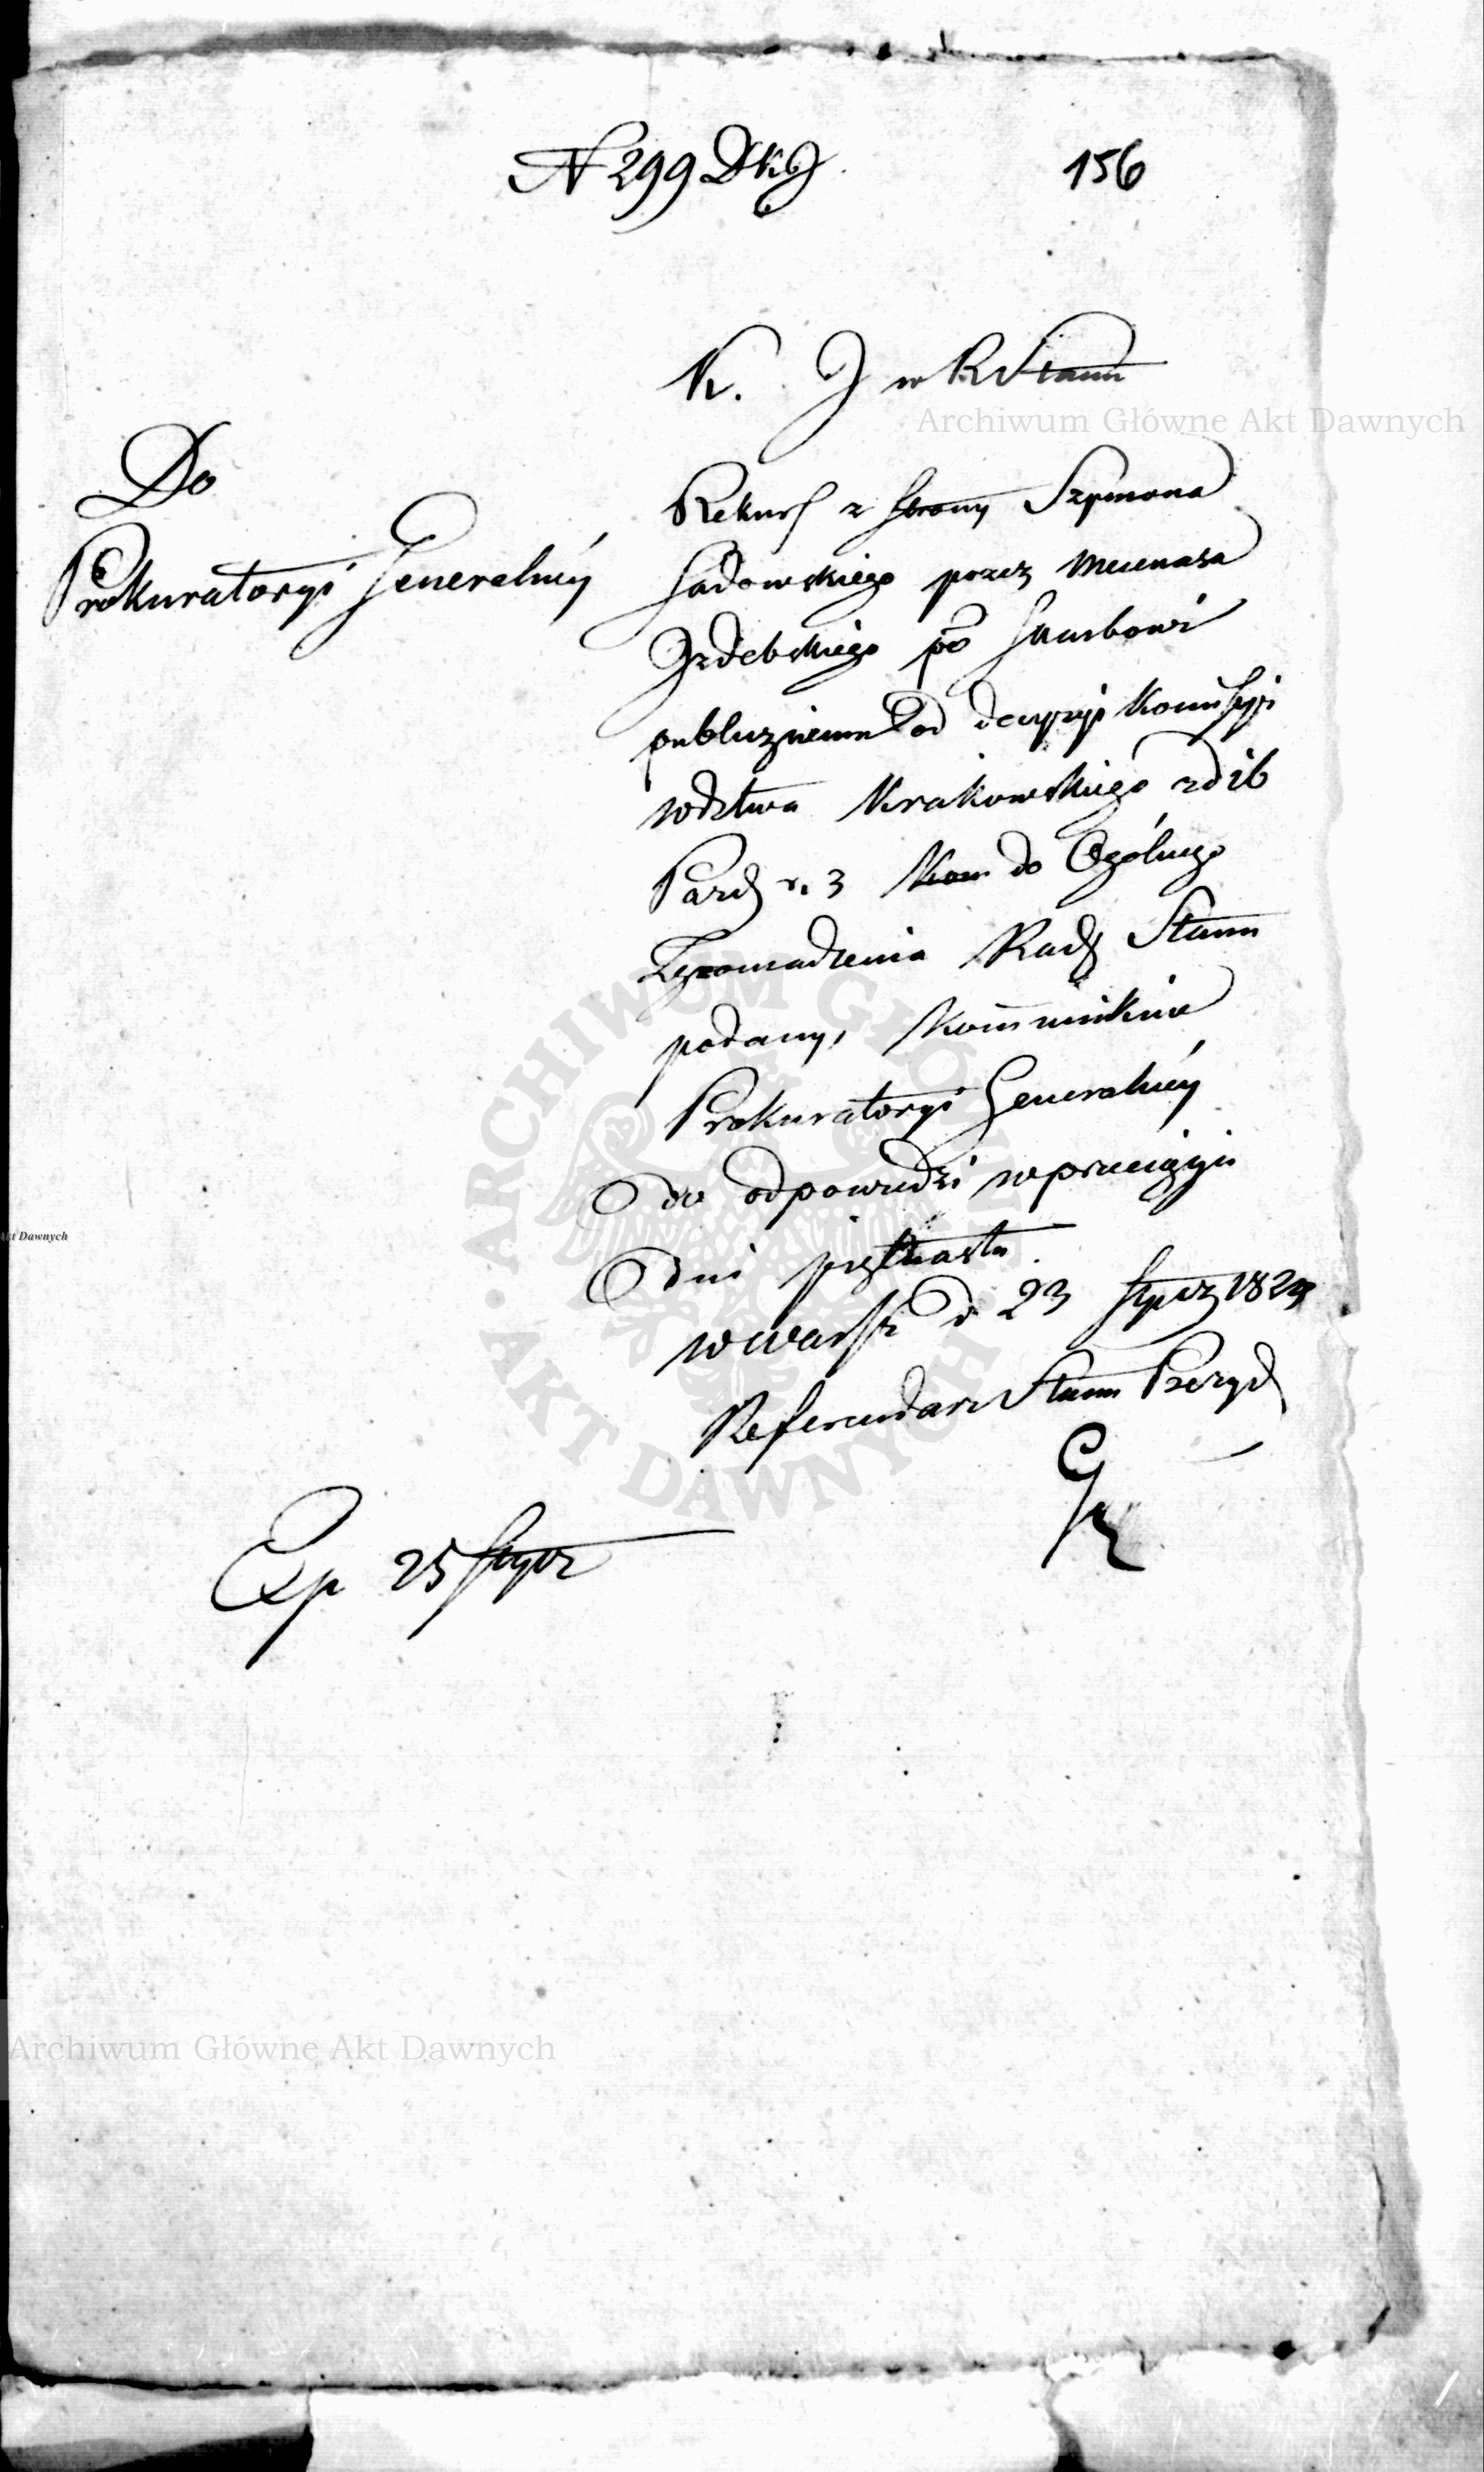 N 299 DKJ
156
K. J w R Stanu
Do
Prokuratoryi Generalney
Rekurs z strony Szymona
Sadowskiego przez Mecenasa
Grdebskiego po Skarbowi
publicznemu od decyzyi Kommissyi
wdztwa Krakowskiego z d 26
Pazd r. z Kom do Ogólnego
Zgromadzenia Rady Stanu
podany, Kommunikuie
Prokuratoryi Generalney
do odpowiedzi w przeciągu
dni piętnastu.
w Warsz d 23 Stycz 182
Referendarz Stanu Prezyd
Exp 25 Stycz
Archiwum Główne Akt Dawnych
ARCHIWUM GŁÓWNE
AKT DAWNYCH
Akt Dawnych
Archiwum Główne Akt Dawnych